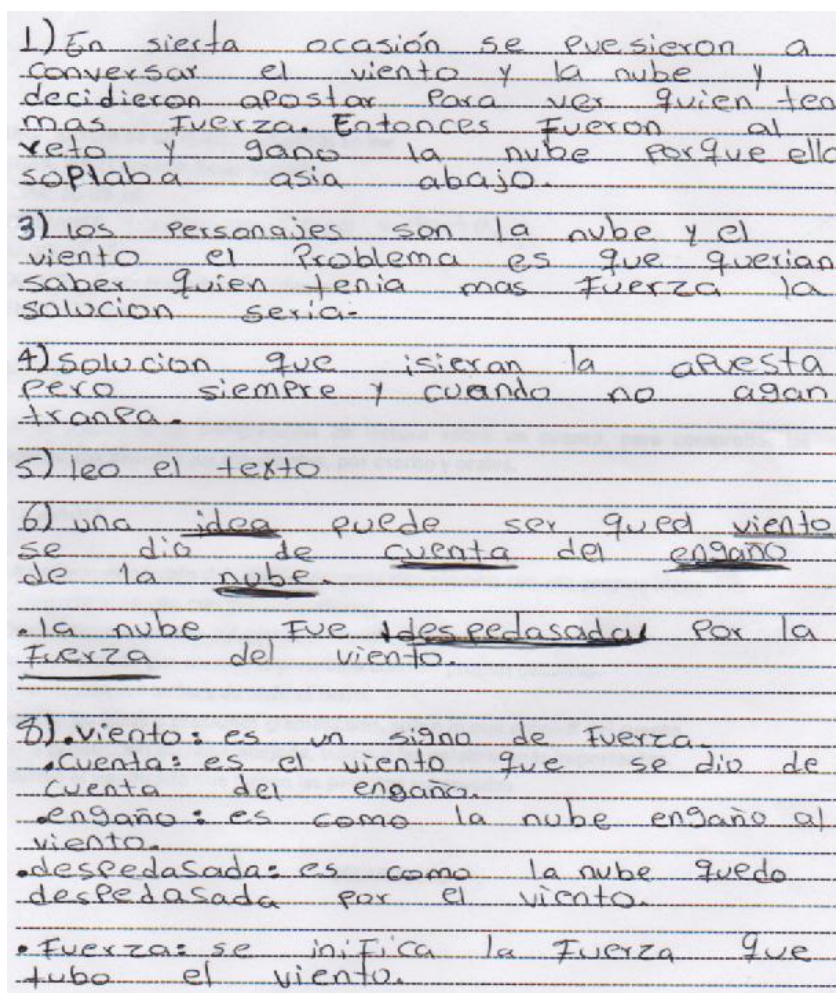 1) En sierta ocasión se puesieron a
conversar el viento y la nube y
decidieron apostar para ver quien ten
mas fuerza. Entonces fueron al
reto y gano la nube porque ella
soplaba asia abajo.
3) los personajes son la nube y el
viento el problema es que querian
saber quien tenia mas fuerza la
solucion seria.
4) solucion que isieran la apuesta
pero siempre y cuando no agan
tranpa.
5) leo el texto
6) una idea puede ser qued viento
se dio de cuenta del engaño
de la nube.
.la nube fue despedasada por la
fuerza del viento.
8).viento: es un signo de fuerza.
.cuenta: es el viento que se dio de
cuenta del engaña.
.engaño: es como la nube engaño al
viento.
.despedasada: es como la nube quedo
despedasada por el viento.
.fuerza: se inifica la fuerza que
tubo el viento.